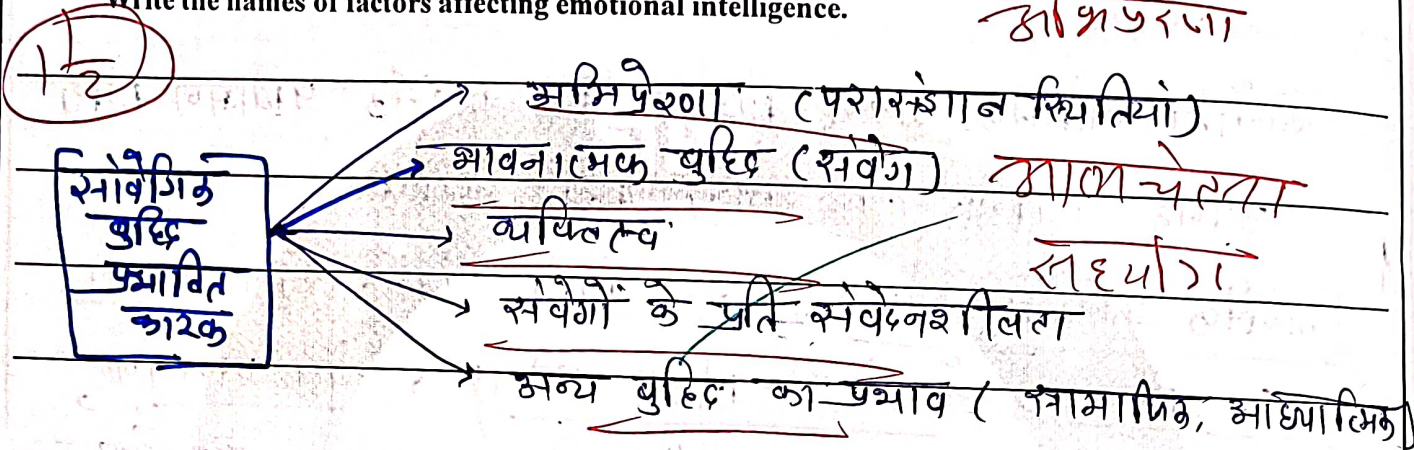 Write the names of factors affecting emotional intelligence.
अभिप्रेरणा
1 1/2
अभिप्रेरणा (परासंज्ञान स्थितियां)
भावनात्मक बुद्धि (संवेग)
आत्मचेतना
सांवेगिक
बुद्धि
प्रभावित
कारक
व्यक्तित्व
सहयोग
संवेगों के प्रति संवेदनशीलता
अन्य बुद्धि का प्रभाव ( सामाजिक, आध्यात्मिक)